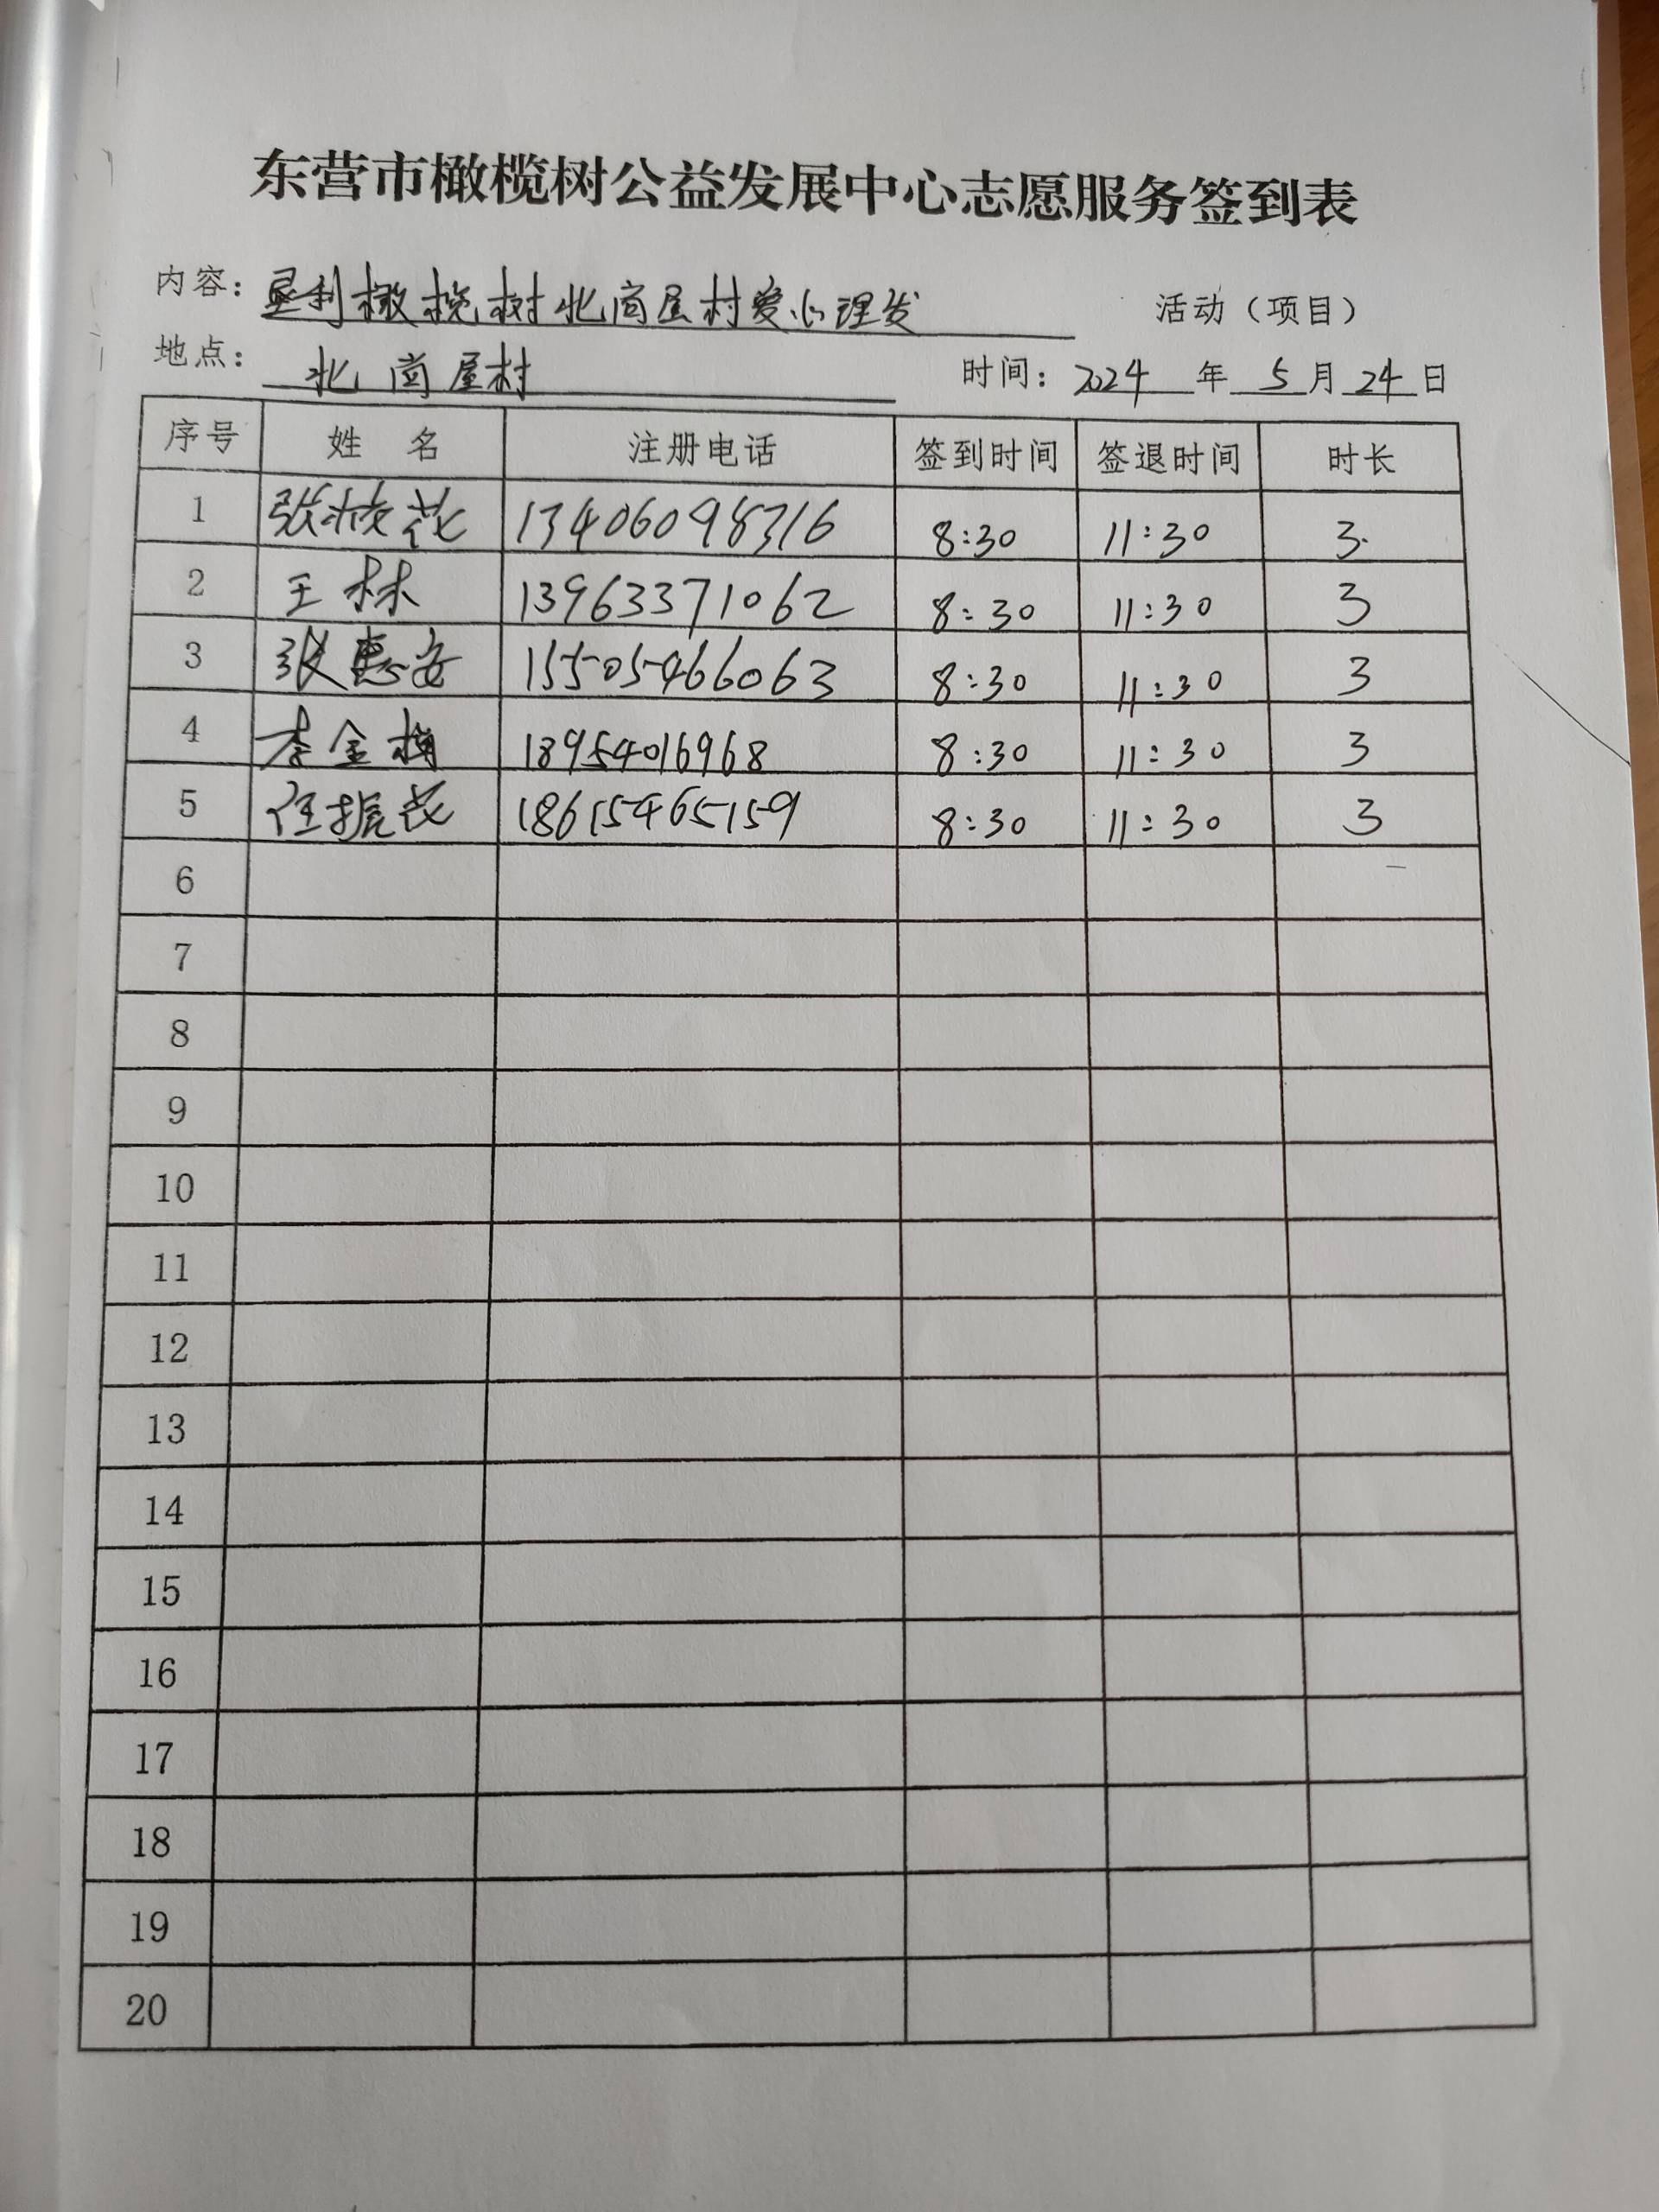 东营市橄榄树公益发展中心志愿服务签到表
内容：垦利橄榄树北商屋村爱心理发 活动（项目）
地点：北商屋村 时间：2024 年 5 月 24 日
序号 姓 名 注册电话 签到时间 签退时间 时长
1 张 花 13406098316 8:30 11:30 3.
2 王林 13963371062 8:30 11:30 3
3 张惠安 15505466063 8:30 11:30 3
4 李金梅 18954016968 8:30 11:30 3
5 任振花 18615465159 8:30 11:30 3
6
7
8
9
10
11
12
13
14
15
16
17
18
19
20